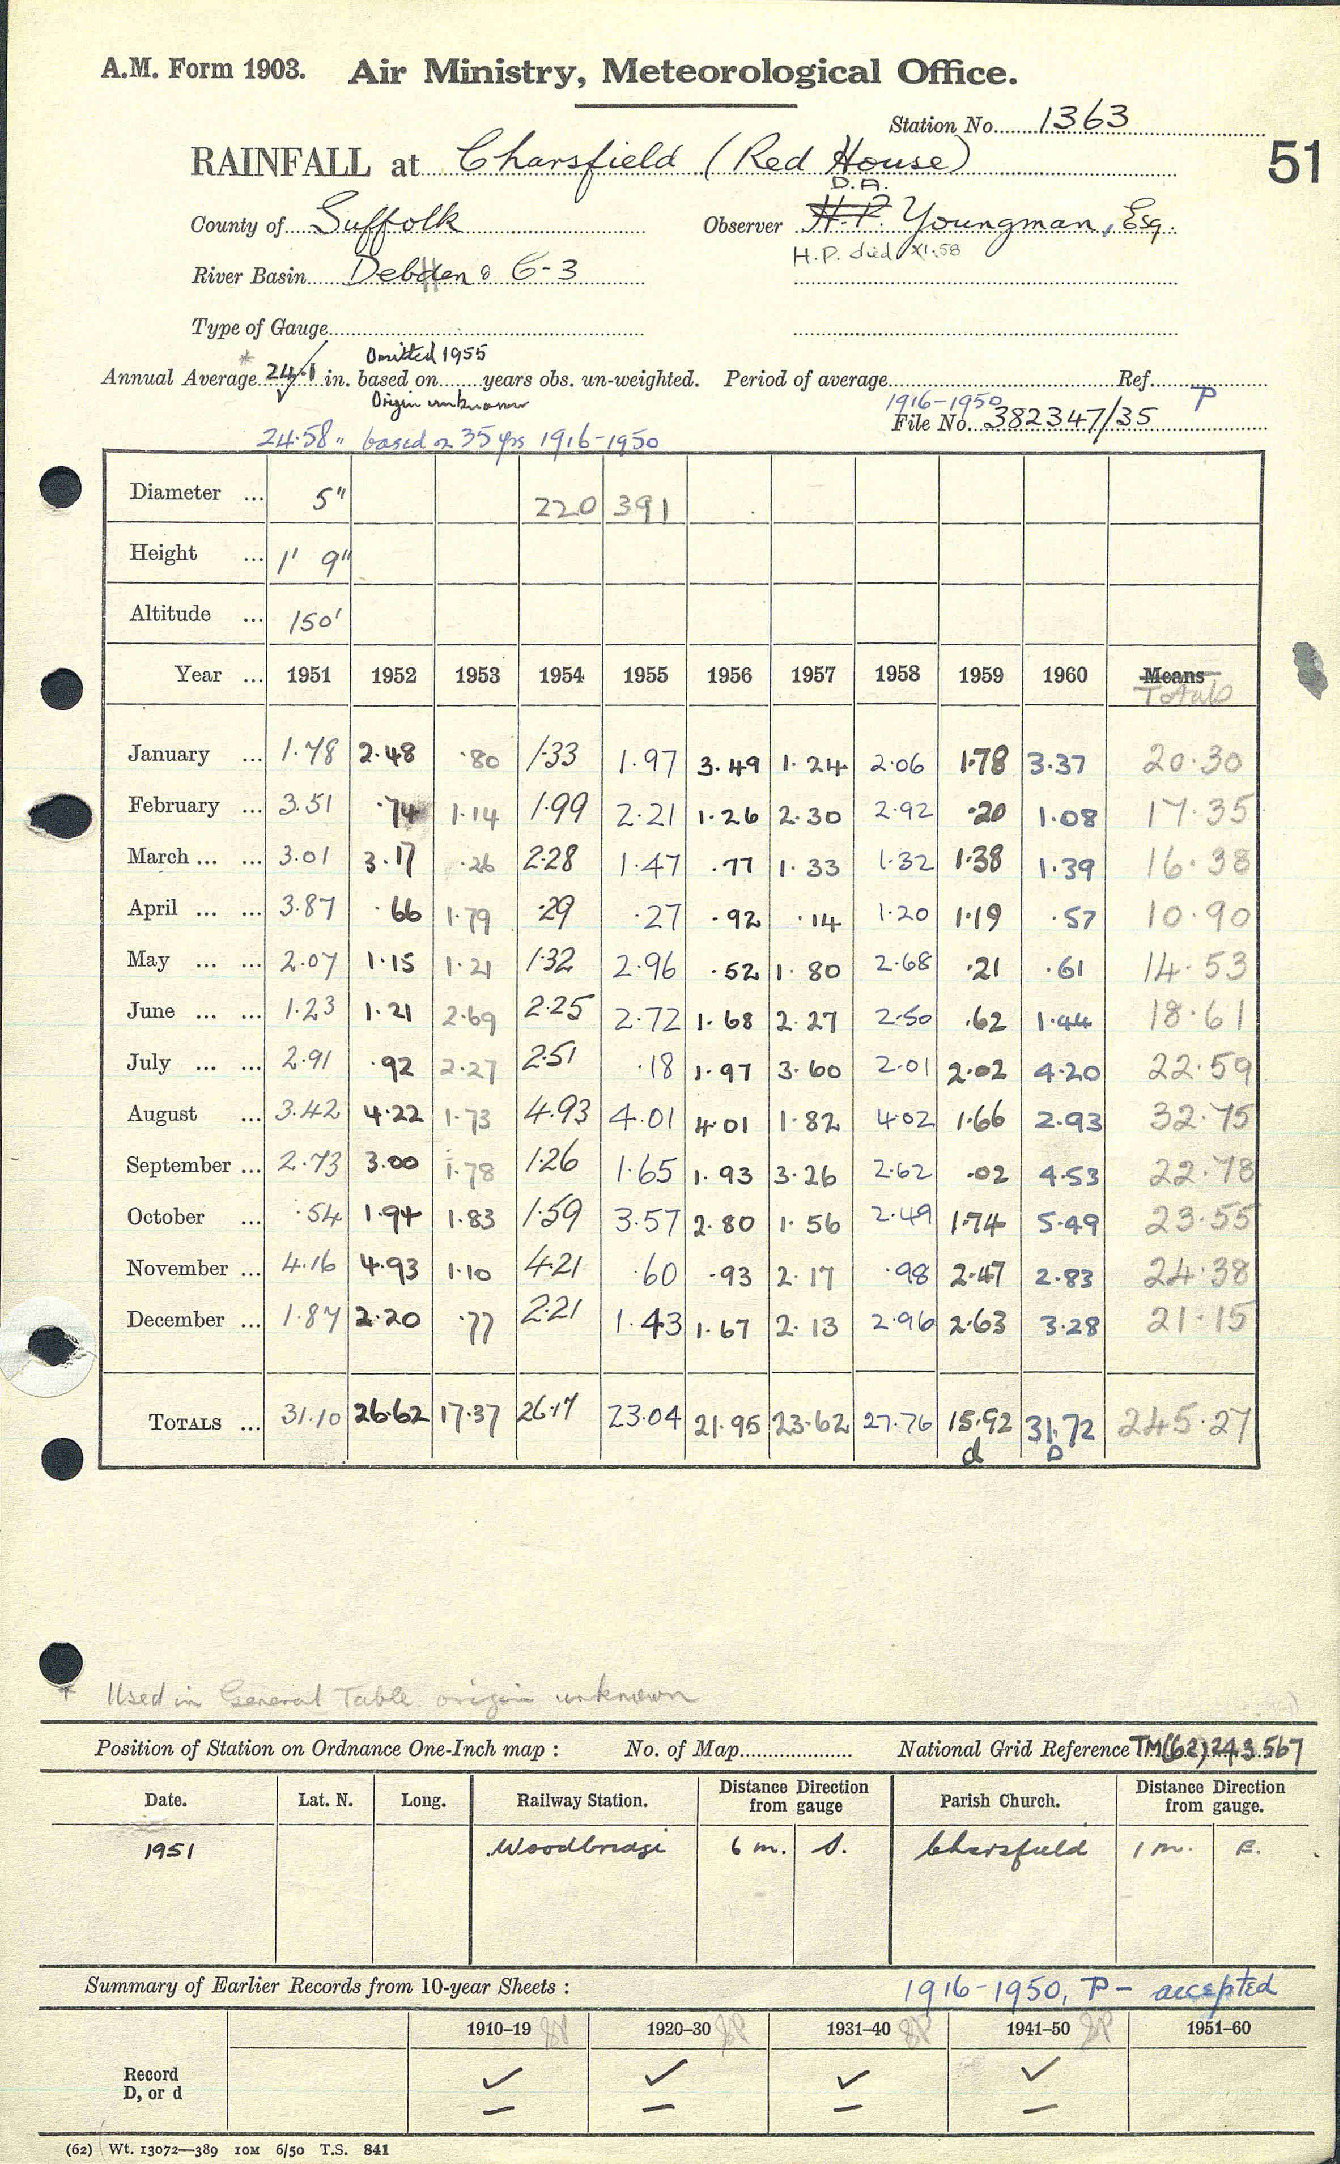 A.M. Form 1903. Air Ministry, Meteorological Office.
Station No. 1363
51
RAINFALL at Charsfield (Red House)
D.A.
County of Suffolk Observer H.P. Youngman, Esq.
H.P. died XI.58
River Basin Debden 6-3
Type of Gauge
Omitted 1955
* Annual Average 24.1 in. based on years obs. un-weighted. Period of average Ref.
Origin unknown 1916-1950 P
File No. 382347/35
24.58" based on 35 yrs 1916-1950
Diameter ... 5" 220 391
Height ... 1' 9"
Altitude ... 150'
Year ... 1951 1952 1953 1954 1955 1956 1957 1958 1959 1960 Means
Totals
January ... 1.78 2.48 .80 1.33 1.97 3.49 1.24 2.06 1.78 3.37 20.30
February ... 3.51 .74 1.14 1.99 2.21 1.26 2.30 2.92 .20 1.08 17.35
March ... ... 3.01 3.17 .26 2.28 1.47 .77 1.33 1.32 1.38 1.39 16.38
April ... ... 3.87 .66 1.79 .29 .27 .92 .14 1.20 1.19 .57 10.90
May ... ... 2.07 1.15 1.21 1.32 2.96 .52 1.80 2.68 .21 .61 14.53
June ... ... 1.23 1.21 2.69 2.25 2.72 1.68 2.27 2.50 .62 1.44 18.61
July ... ... 2.91 .92 2.27 2.51 .18 1.97 3.60 2.01 2.02 4.20 22.59
August ... 3.42 4.22 1.73 4.93 4.01 4.01 1.82 4.02 1.66 2.93 32.75
September ... 2.73 3.00 1.78 1.26 1.65 1.93 3.26 2.62 .02 4.53 22.78
October ... .54 1.94 1.83 1.59 3.57 2.80 1.56 2.49 1.74 5.49 23.55
November ... 4.16 4.93 1.10 4.21 .60 .93 2.17 .98 2.47 2.83 24.38
December ... 1.87 2.20 .77 2.21 1.43 1.67 2.13 2.96 2.63 3.28 21.15
TOTALS ... 31.10 26.62 17.37 26.17 23.04 21.95 23.62 27.76 15.92 31.72 245.27
d D
* Used in General Table origin unknown
Position of Station on Ordnance One-Inch map : No. of Map National Grid Reference TM(62)243567
Date. Lat. N. Long. Railway Station. Distance from gauge Direction Parish Church. Distance from gauge. Direction
1951 Woodbridge 6 m. S. Charsfield 1 m. E.
Summary of Earlier Records from 10-year Sheets : 1916-1950, P - accepted
1910–19 1920–30 1931–40 1941–50 1951–60
Record ✓ ✓ ✓ ✓
D, or d – – – –
(62) Wt. 13072—389 10M 6/50 T.S. 841